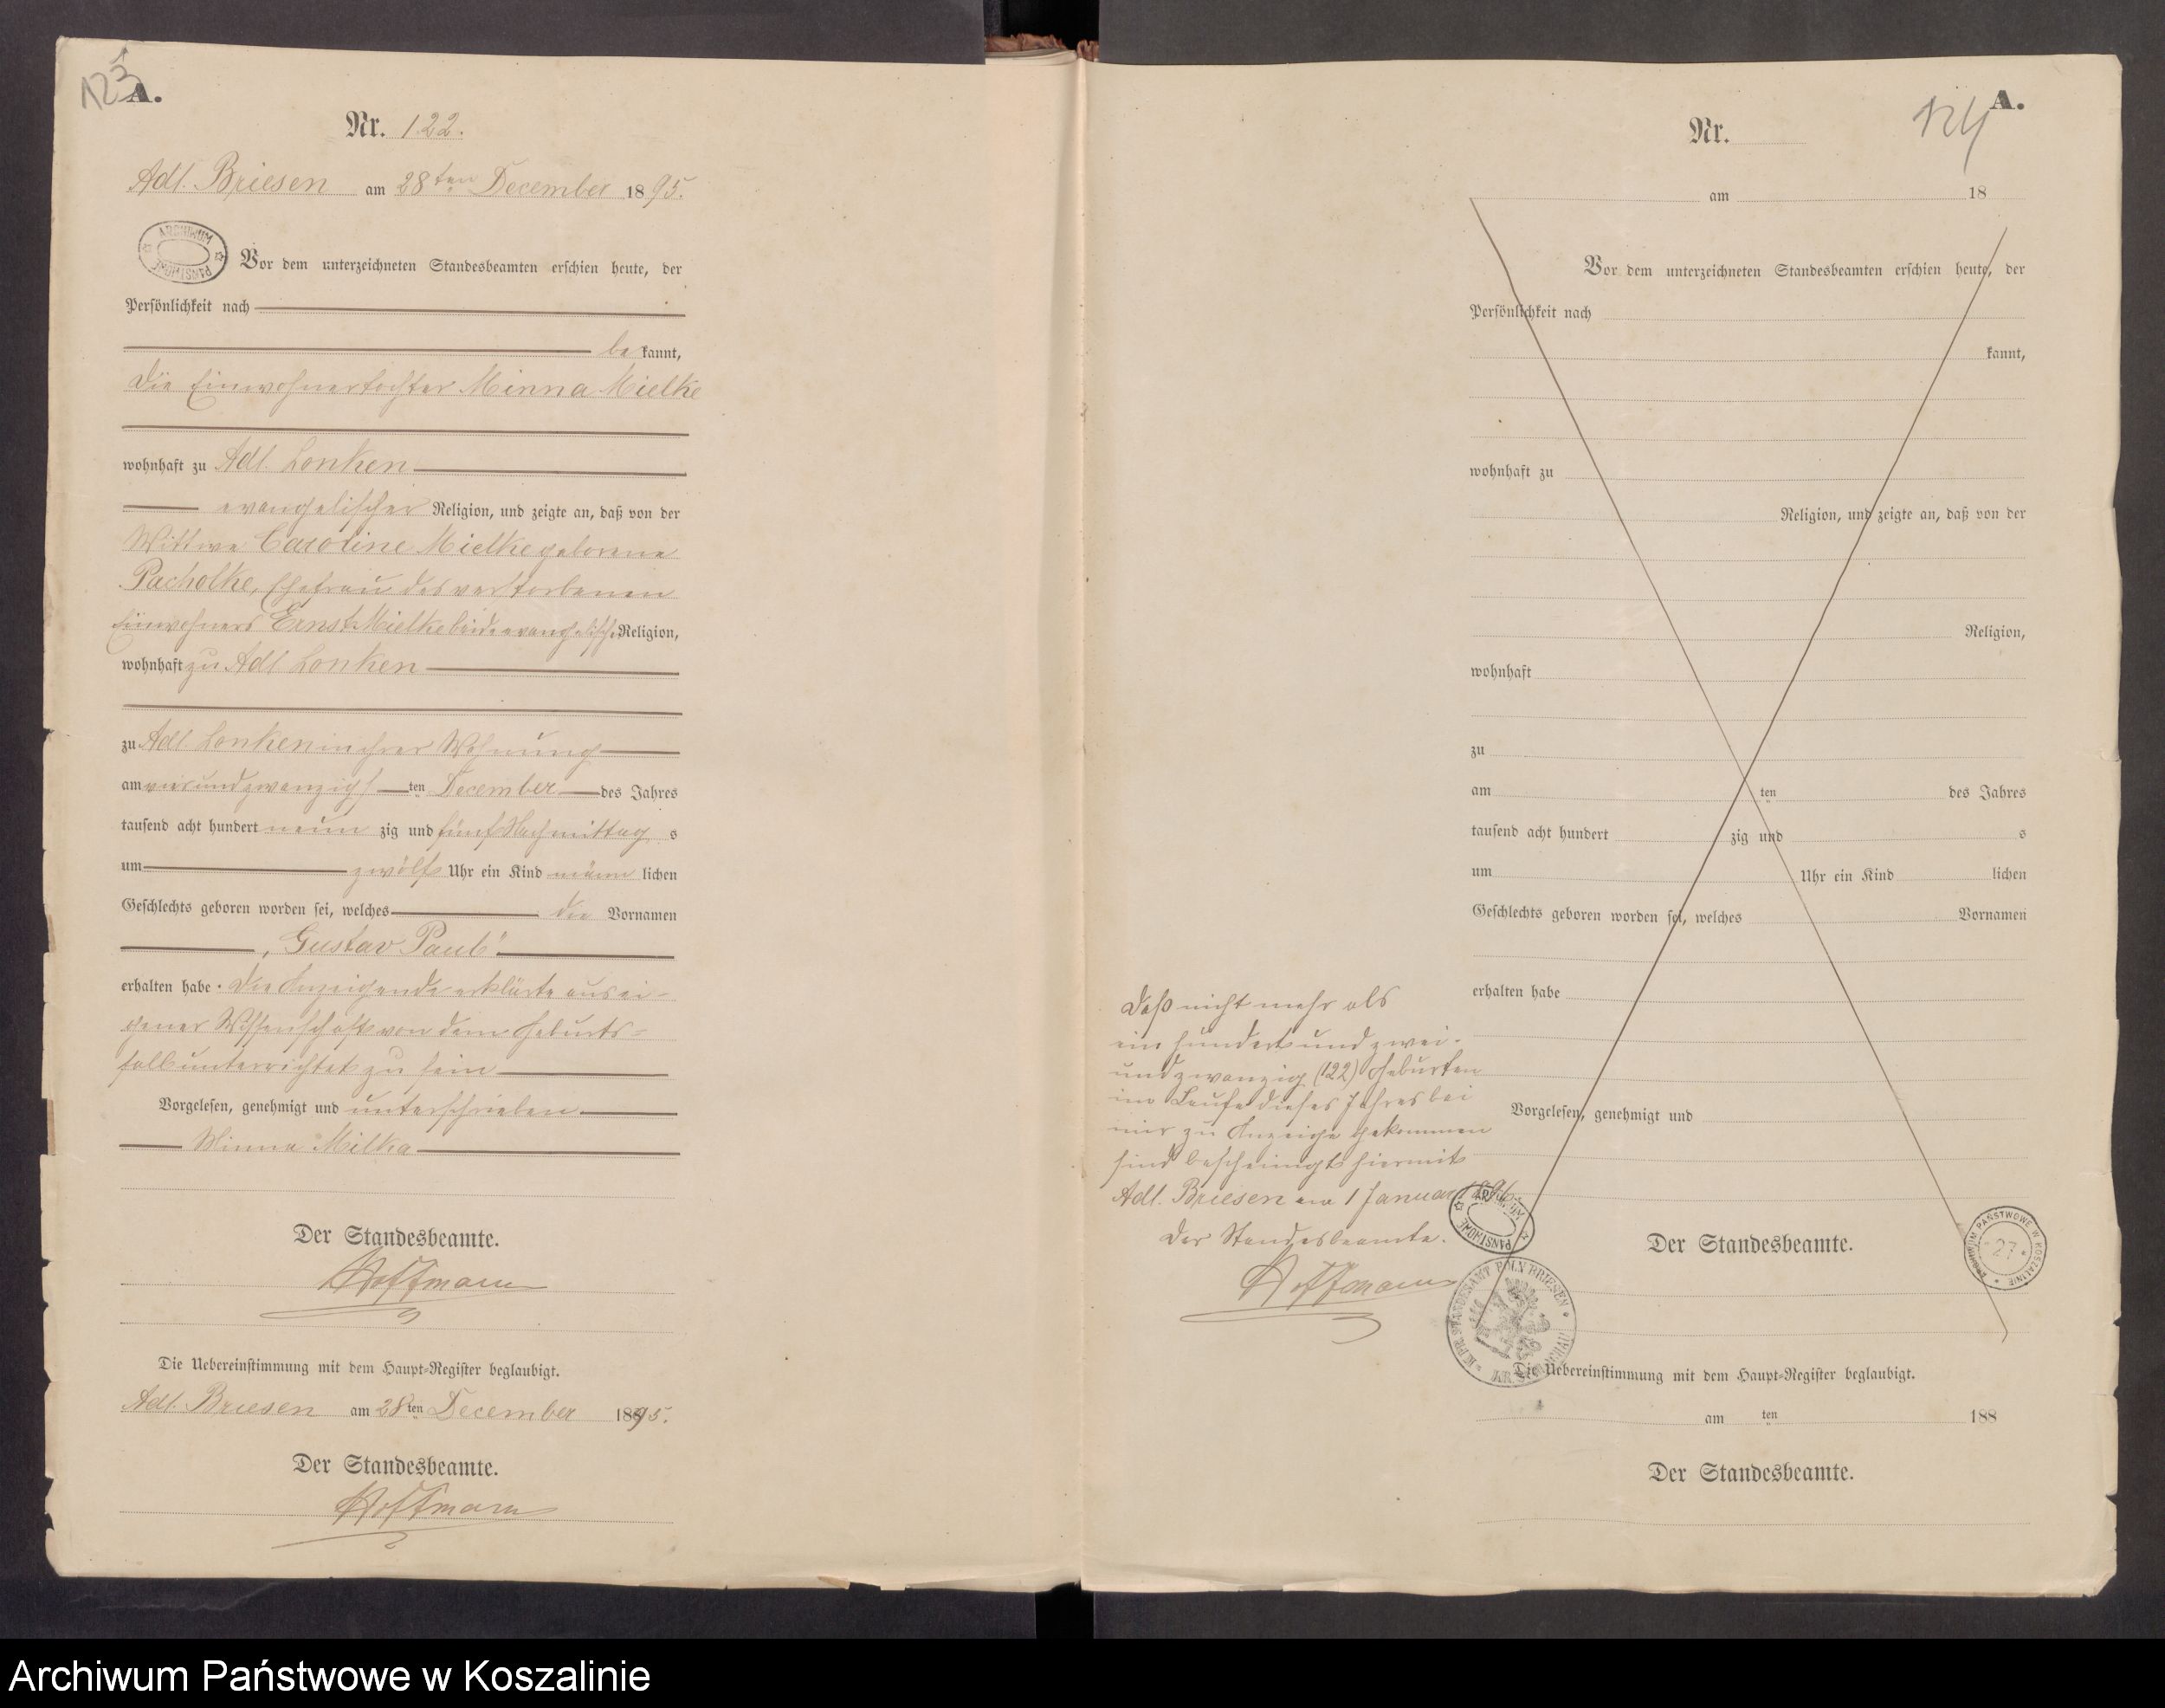 123
A.
Nr. 122.
Adl. Briesen am 28ten December 1895.
ARCHIWUM PAŃSTWOWE
Vor dem unterzeichneten Standesbeamten erschien heute, der
Persönlichkeit nach
bekannt,
die Einwohnertochter Minna Mielke
wohnhaft zu Adl. Lonken
evangelischer Religion, und zeigte an, daß von der
Wittwe Caroline Mielke geborene
Pacholke, Ehefrau des verstorbenen
Einwohners Ernst Mielke beide evangelischer Religion,
wohnhaft zu Adl. Lonken
zu Adl. Lonken in ihrer Wohnung
am vierundzwanzigsten December des Jahres
tausend acht hundert neunzig und fünf Nachmittags
um zwölf Uhr ein Kind männlichen
Geschlechts geboren worden sei, welches die Vornamen
„Gustav Paul"
erhalten habe. Die Anzeigende erklärte aus ei-
gener Wissenschaft von dem Geburts-
fall unterrichtet zu sein
Vorgelesen, genehmigt und unterschrieben
Minna Milka
Der Standesbeamte.
Hoffmann
Die Uebereinstimmung mit dem Haupt-Register beglaubigt.
Adl. Briesen am 28ten December 1895.
Der Standesbeamte.
Hoffmann
A.
124
Nr.
am 18
Vor dem unterzeichneten Standesbeamten erschien heute, der
Persönlichkeit nach
kannt,
wohnhaft zu
Religion, und zeigte an, daß von der
Religion,
wohnhaft
zu
am ten des Jahres
tausend acht hundert zig und s
um Uhr ein Kind lichen
Geschlechts geboren worden sei, welches Vornamen
erhalten habe
Vorgelesen, genehmigt und
Der Standesbeamte.
Die Uebereinstimmung mit dem Haupt-Register beglaubigt.
am ten 188
Der Standesbeamte.
Daß nicht mehr als
ein hundert und zwei-
undzwanzig (122) Geburten
im Laufe dieses Jahres bei
mir zu Anzeige gekommen
sind bescheinigt hiermit
Adl. Briesen am 1 Januar
Der Standesbeamte.
Hoffmann
ARCHIWUM PAŃSTWOWE
K. PR. STANDESAMT POLN BRIESEN
ARCHIWUM PAŃSTWOWE W KOSZALINIE
27
Archiwum Państwowe w Koszalinie